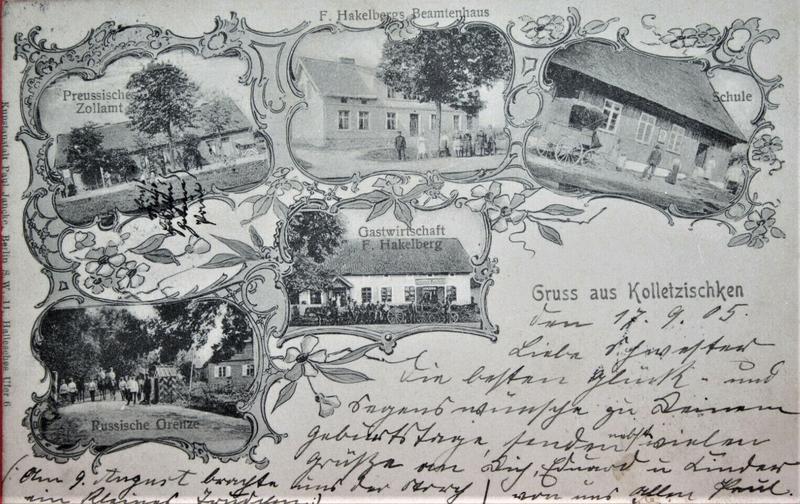 F. Hakelbergs Beamtenhaus
Preussisches
Zollamt
Schule
Gastwirtschaft
F. Hakelberg
Russische Grenze
Gruss aus Kolletzischken
den 17.9.05.
Liebe Schwester
Die besten Glück- und
Segenswünsche zu Deinem
Geburtstage, senden nebst vielen
Grüße an Dich, Eduard u Kinder
von uns Allen Paul.
(Am 9. August brachte uns der Storch
ein kleines
Kunstanstalt Paul Berlin S.W. 11, Hallesches Ufer 6